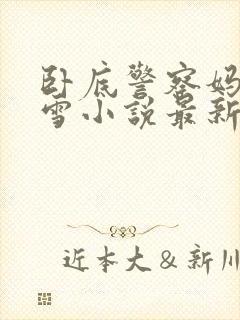 卧底警察妈
雪小説最新
近本大＆新川